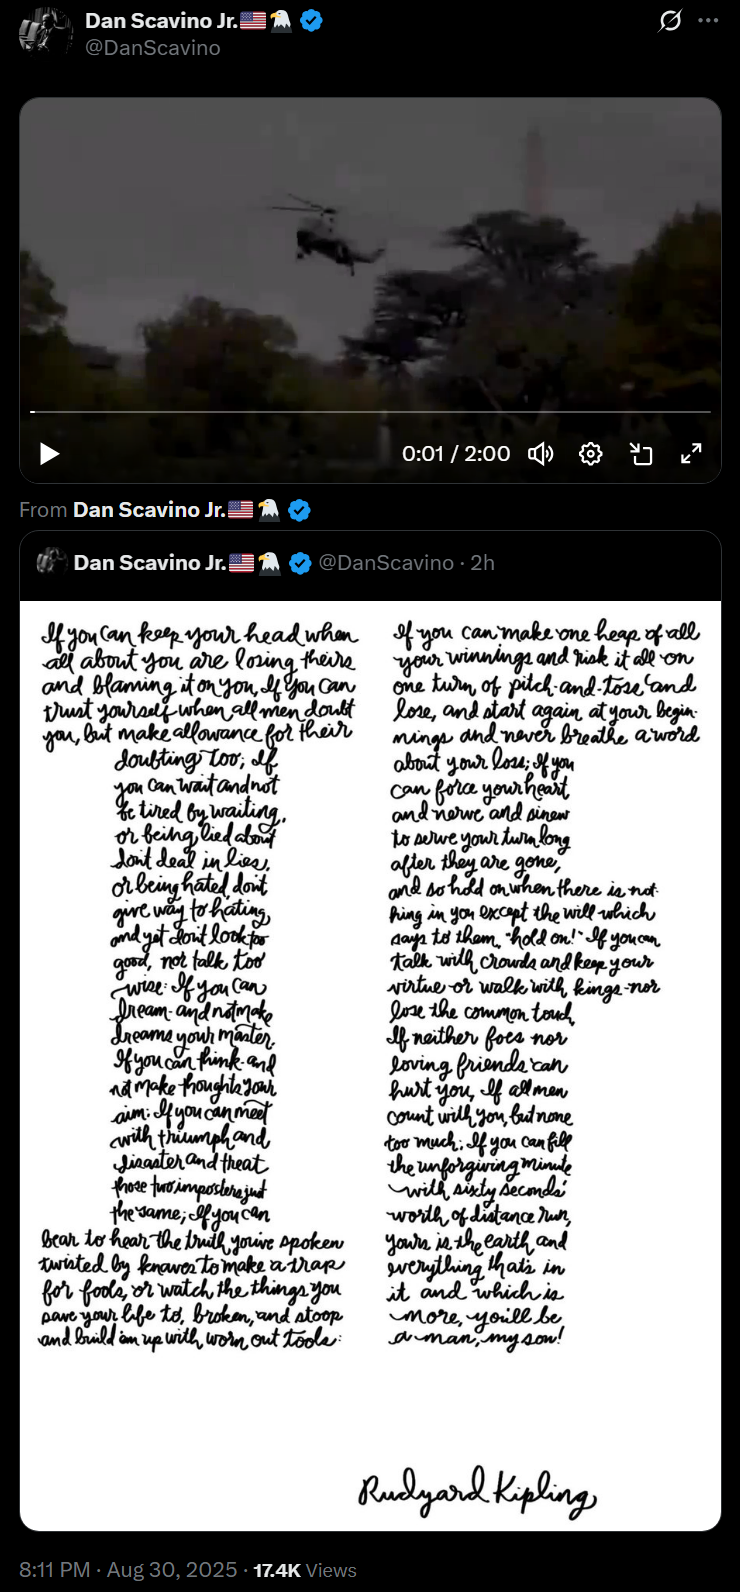 Dan Scavino Jr.🇺🇸🦅
@DanScavino
0:01 / 2:00
From Dan Scavino Jr.🇺🇸🦅
Dan Scavino Jr.🇺🇸🦅 @DanScavino · 2h
If you can keep your head when
all about you are losing theirs
and blaming it on you, If you can
trust yourself when all men doubt
you, but make allowance for their
doubting too; If
you can wait and not
be tired by waiting,
or being lied about
don't deal in lies,
or being hated, don't
give way to hating,
and yet don't look too
good, nor talk too
wise: If you can
dream-and not make
dreams your master,
If you can think-and
not make thoughts your
aim: If you can meet
with triumph and
disaster and treat
those two imposters just
the same; If you can
bear to hear the truth you've spoken
twisted by knaves to make a trap
for fools, or watch the things you
gave your life to, broken, and stoop
and build 'em up with worn out tools:
If you can make one heap of all
your winnings and risk it all on
one turn of pitch-and-toss, and
lose, and start again at your begin-
nings and never breathe a word
about your loss; If you
can force your heart
and nerve and sinew
to serve your turn long
after they are gone,
and so hold on when there is not-
hing in you except the will which
says to them, "hold on!" If you can
talk with crowds and keep your
virtue or walk with kings-nor
lose the common touch,
If neither foes nor
loving friends can
hurt you, If all men
count with you, but none
too much; If you can fill
the unforgiving minute
with sixty seconds'
worth of distance run,
yours is the earth and
everything that's in
it and which is
more, you'll be
a man, my son!
Rudyard Kipling
8:11 PM · Aug 30, 2025 · 17.4K Views